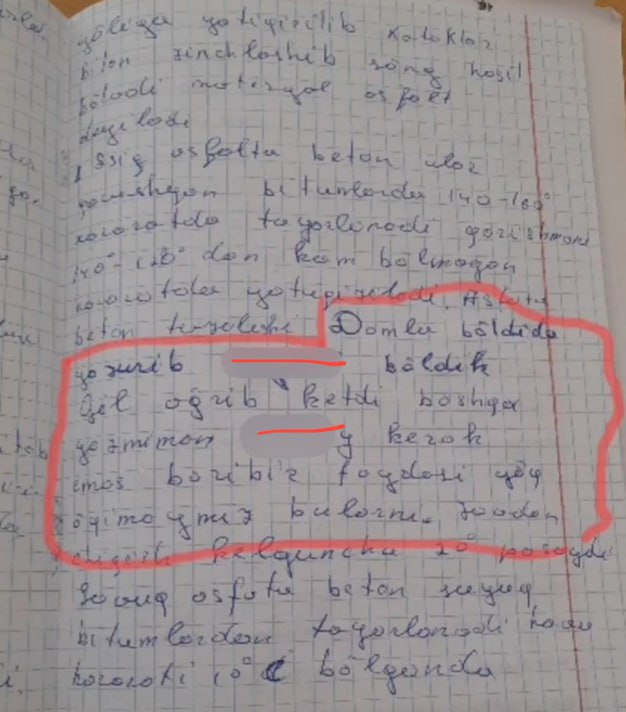 yōliga yotigizilib Katoklar
bilan zinchlashib song hosil
bōladi materyal asfalt
deyiladi
Issig asfalta beton ular
bitumlarda 140-160°
xaroratda tayorlanadi qorishmani
140°-120° dan kam bōlmagan
xaroratda yotigiziladi. Asfalta
beton Domla bōldida
yozurib bōldik
Qōl oğrib ketdi boshqa
yozmiman y kerak
emas baribir foydasi yōq
ōqimaymiz bularni. Zavdan
chiqish kelguncha 20° pasaydi
Sovuq asfata beton suyuq
bitumlardan tayorlanadi havo
xaroroti 10° C bōlganda